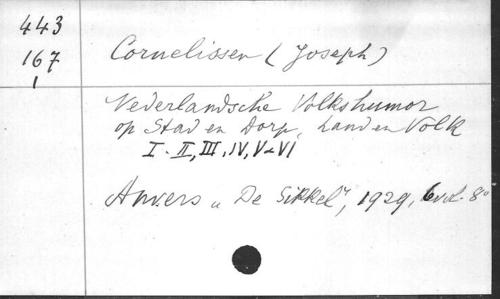 443
167
1
Cornelissen (Joseph)
Nederlandsche Volkshumor
op Stad en Dorp, Land en Volk
I-II, III, IV, V & VI
Anvers „De Sikkel", 1929, 6 vol. 8°